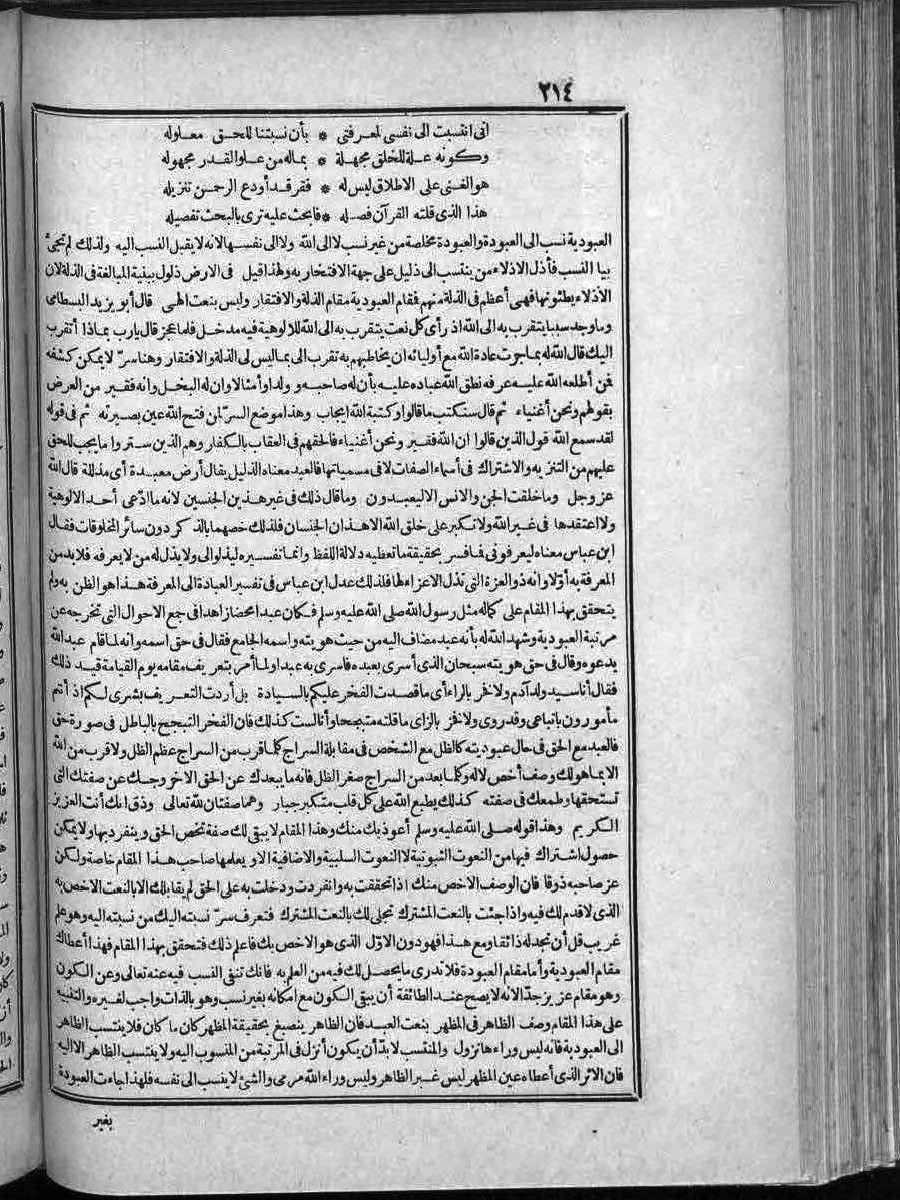 ٢١٤
انى انتسبت الى نفسى لمعرفتى * بأن نسبتنا للحق معلوله
وكونه علة للخلق مجهلة * بماله من علو القدر مجهوله
هو الغنى على الاطلاق ليس له * فقر قد أودع الرحمن تنزيله
هذا الذى قلته القرآن فصله * فابحث عليه ترى بالبحث تفصيله
العبودية نسب الى العبودة والعبودة مخلصة من غير نسب لا الى الله ولا الى نفسها لانه لا يقبل النسب اليه ولذلك لم تجئ
بيا النسب فأذل الاذلاء من ينتسب الى ذليل على جهة الافتخار به ولهذا قيل فى الارض ذلول ببنية المبالغة فى الذلة لان
الأذلاء يطئونها فهى أعظم فى الذلة منهم فقام العبودية مقام الذلة والافتقار وليس بنعت الهى قال أبو يزيد البسطامى
وما وجد سببا يتقرب به الى الله اذ رأى كل نعت يتقرب به الى الله للالوهية فيه مدخل فلما عجز قال يارب بماذا أتقرب
اليك قال الله له بما جرت عادة الله مع أوليائه ان يخاطبهم به تقرب الى بما ليس لى الذلة والافتقار وهنا سر لا يمكن كشفه
فمن أطلعه الله عليه عرفه نطق الله عباده عليه بأن له صاحبه وولدا وأمثالا وان له البخل وانه فقير من العرض
بقولهم ونحن أغنياء ثم قال سنكتب ما قالوا وكتبة الله ايجاب وهذا موضع السر لمن فتح الله عين بصيرته ثم فى قوله
لقد سمع الله قول الذين قالوا ان الله فقير ونحن أغنياء فالحقهم فى العقاب بالكفار وهم الذين ستروا ما يجب للحق
عليهم من التنزيه والاشتراك فى أسماء الصفات لا فى مسمياتها فالعبد معناه الذليل يقال أرض معبدة أى مذللة قال الله
عز وجل وما خلقت الجن والانس الا ليعبدون وما قال ذلك فى غير هذين الجنسين لانه ما ادعى أحد الالوهية
ولا اعتقدها فى غير الله ولا تكبر على خلق الله الا هذان الجنسان فلذلك خصهما بالذكر دون سائر المخلوقات فقال
ابن عباس معناه ليعرفونى فما فسر بحقيقة ما تعطيه دلالة اللفظ وانما تفسيره ليذلوا لى ولا يذل له من لا يعرفه فلا بد من
المعرفة به أولا وانه ذو العزة التى تذل الاعزاء لها فلذلك عدل ابن عباس فى تفسير العبادة الى المعرفة هذا هو الظن به ولم
يتحقق بهذا المقام على كماله مثل رسول الله صلى الله عليه وسلم فكان عبدا محضا زاهدا فى جميع الاحوال التى تخرجه عن
مرتبة العبودية وشهد الله له بأنه عبد مضاف اليه من حيث هويته واسمه الجامع فقال فى حق اسمه وانه لما قام عبد الله
يدعوه وقال فى حق هويته سبحان الذى أسرى بعبده فاسرى به عبدا ولما أمر بتعريف مقامه يوم القيامة قيد ذلك
فقال أنا سيد ولد آدم ولا فخر بالراء أى ما قصدت الفخر عليكم بالسيادة بل أردت التعريف بشرى لكم اذ أنتم
مأمورون باتباعى وقد روى ولا فخز بالزاى ما قلته متبجحا وأنا لست كذلك فان الفخز التبجح بالباطل فى صورة حق
فالعبد مع الحق فى حال عبوديته كالظل مع الشخص فى مقابلة السراج كلما قرب من السراج عظم الظل ولا قرب من الله
الا بما هو لك وصف أخص لا له وكلما بعد من السراج صغر الظل فانه ما يبعدك عن الحق الا خروجك عن صفتك التى
تستحقها وطمعك فى صفته كذلك يطبع الله على كل قلب متكبر جبار وهما صفتان لله تعالى وذق انك أنت العزيز
الكريم وهذا قوله صلى الله عليه وسلم أعوذ بك منك وهذا المقام لا يبقى لك صفة تخص الحق وينفرد بها ولا يمكن
حصول اشتراك فيها من النعوت الثبوتية لا النعوت السلبية والاضافية الا ويعلمها صاحب هذا المقام خاصة ولكن
عز صاحبه ذوقا فان الوصف الاخص منك اذا تحققت به وانفردت ودخلت به على الحق لم يقابلك الا بالنعت الاخص به
الذى لا قدم لك فيه واذا جئت بالنعت المشترك تجلى لك بالنعت المشترك فتعرف سر نسبته اليك من نسبته اليه وهو علم
غريب قل أن تجد له ذائقا ومع هذا فهو دون الاول الذى هو الاخص بك فاعلم ذلك فتحقق بهذا المقام فهذا أعطاك
مقام العبودية وأما مقام العبودة فلا تدرى ما يحصل لك فيه من العلم به فانك تنفى النسب فيه عنه تعالى وعن الكون
وهو مقام عزيز جدا لانه لا يصح عند الطائفة أن يبقى الكون مع امكانه بغير نسب وهو بالذات واجب لغيره والتنبيه
على هذا المقام وصف الظاهر فى المظهر بنعت العبد فان الظاهر ينصبغ بحقيقة المظهر كان ما كان فلا ينتسب الظاهر
الى العبودية فانه ليس وراءها نزول والمنتسب لا بد أن يكون أنزل فى المرتبة من المنسوب اليه ولا ينتسب الظاهر الا اليه
فان الاثر الذى أعطاه عين المظهر ليس غير الظاهر وليس وراء الله مرمى والشئ لا ينسب الى نفسه فلهذا جاءت العبودة
بغير